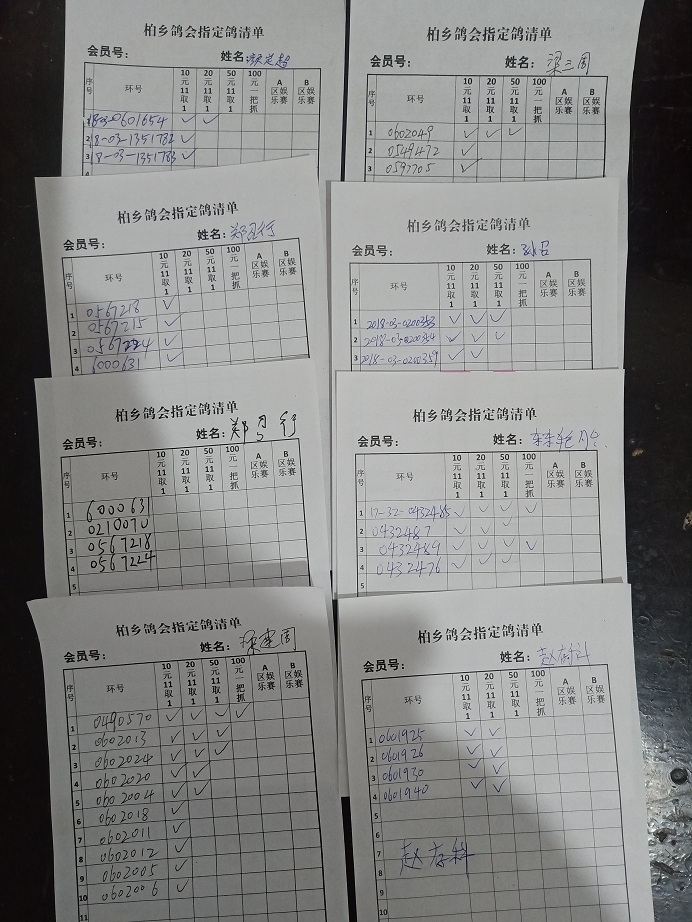 柏乡鸽会指定鸽清单
会员号： 姓名：
序号 环号 10元11取1 20元11取1 50元11取1 100元一把抓 A区娱乐赛 B区娱乐赛
1 18-03-0601654 ✓ ✓
2 18-03-1351782 ✓
3 18-03-1351783 ✓
柏乡鸽会指定鸽清单
会员号： 姓名：梁三周
序号 环号 10元11取1 20元11取1 50元11取1 100元一把抓 A区娱乐赛 B区娱乐赛
1 0602049 ✓ ✓ ✓
2 0549472 ✓
3 0597705 ✓
柏乡鸽会指定鸽清单
会员号： 姓名：郑丑行
序号 环号 10元11取1 20元11取1 50元11取1 100元一把抓 A区娱乐赛 B区娱乐赛
1 0567218 ✓
2 0567215 ✓
3 0567224 ✓
4 600631 ✓
柏乡鸽会指定鸽清单
会员号： 姓名：
序号 环号 10元11取1 20元11取1 50元11取1 100元一把抓 A区娱乐赛 B区娱乐赛
1 2018-03-0200353 ✓ ✓ ✓
2 2018-03-0200354 ✓ ✓ ✓
3 2018-03-0200359 ✓ ✓
柏乡鸽会指定鸽清单
会员号： 姓名：郑丑行
序号 环号 10元11取1 20元11取1 50元11取1 100元一把抓 A区娱乐赛 B区娱乐赛
1 600631
2 0210070
3 0567218
4 0567224
5
柏乡鸽会指定鸽清单
会员号： 姓名：
序号 环号 10元11取1 20元11取1 50元11取1 100元一把抓 A区娱乐赛 B区娱乐赛
1 17-32-0432485 ✓ ✓ ✓ ✓
2 0432487 ✓ ✓
3 0432489 ✓ ✓ ✓ ✓
4 0432476 ✓ ✓ ✓
5
柏乡鸽会指定鸽清单
会员号： 姓名：梁建周
序号 环号 10元11取1 20元11取1 50元11取1 100元一把抓 A区娱乐赛 B区娱乐赛
1 0490570 ✓ ✓ ✓ ✓
2 0602013 ✓ ✓ ✓
3 0602024 ✓ ✓ ✓
4 0602020 ✓ ✓
5 0602004 ✓ ✓
6 0602018 ✓
7 0602011 ✓
8 0602012 ✓
9 0602005 ✓
10 0602006 ✓
11
柏乡鸽会指定鸽清单
会员号： 姓名：赵存科
序号 环号 10元11取1 20元11取1 50元11取1 100元一把抓 A区娱乐赛 B区娱乐赛
1 0601925 ✓ ✓
2 0601926 ✓ ✓
3 0601930 ✓
4 0601940 ✓ ✓
5
6
7
赵存科
8
9
10